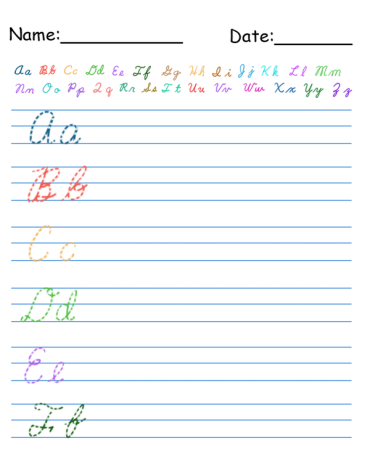 Name:____________ Date:________
Aa Bb Cc Dd Ee Ff Gg Hh Ii Jj Kk Ll Mm
Nn Oo Pp Qq Rr Ss Tt Uu Vv Ww Xx Yy Zz
Aa
Bb
Cc
Dd
Ee
Ff